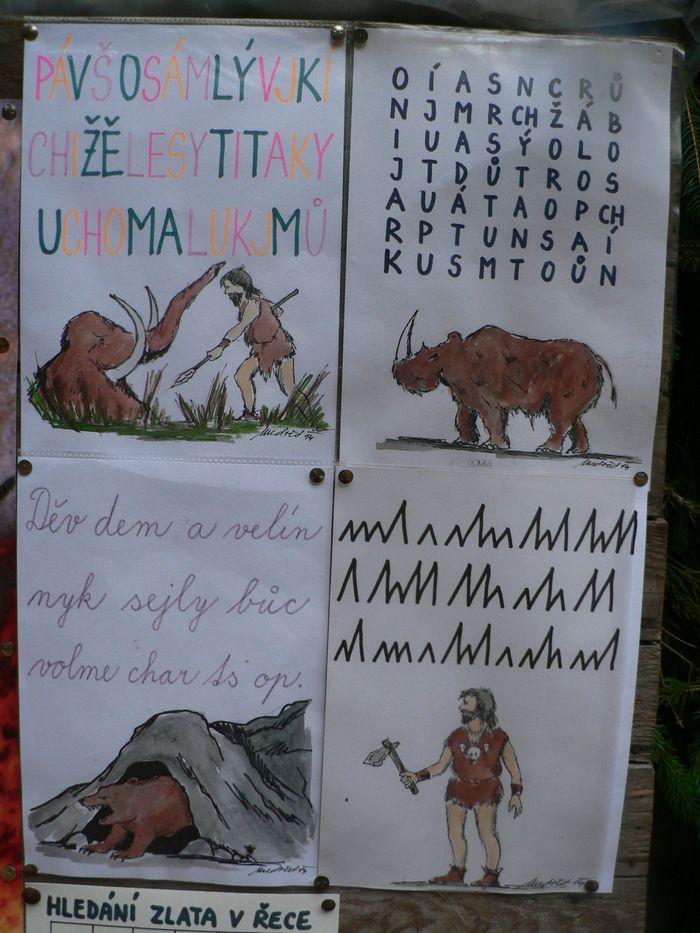 PÁVŠOSÁMLÝVJKÍ
CHIŽĚLESYTITAKY
UCHOMALUKJMŮ
O Í A S N C R Ů
N J M R CH Ž Á B
I U A S Ý O L O
J T D Ů T R O S
A U Á T A O P CH
R P T U N S A Í
K U S M T O Ů N
Děv dem a velín
nyk sejly bůc
volme char ts op.
HLEDÁNÍ ZLATA V ŘECE